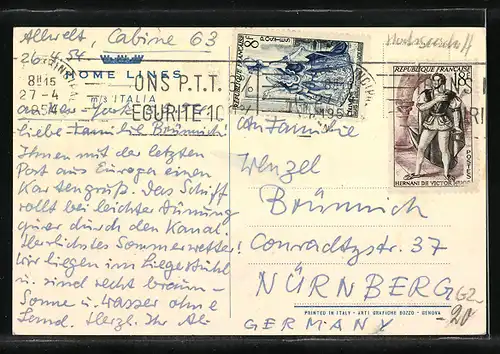 Allwelt, Cabine 63
26.4.54
8H15
27-4
1954
HOME LINES
m/s ITALIA
ONS P.T.T.
liebe Familie Brünnich!
Ihnen mit der letzten
Post aus Europa einen
Kartengruß. Das Schiff
rollt bei leichter Dünung
quer durch den Kanal.
Herrlichstes Sommerwetter!
Wir liegen im Liegestuhl
u. sind recht braun-
Sonne u. Wasser ohne
Land. Herzl. Ihr
18F
POSTES
RÉPUBLIQUE FRANÇAISE
18F
POSTES
HERNANI DE VICTOR
An Familie
Wenzel
Brünnich
Conradtystr. 37
NÜRNBERG
PRINTED IN ITALY - ARTI GRAFICHE BOZZO - GENOVA
GERMANY
-20